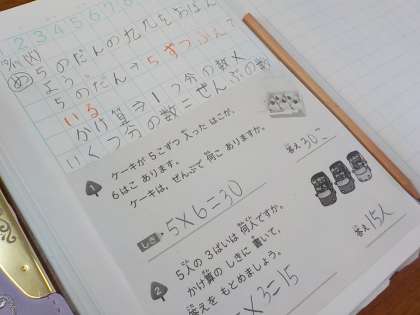 2 3 4 5 6 7 8
10/11(火)
め 5のだんの九九をおぼえ
よう
5のだん→5ずつふえて
いる
かけ算⇒1つ分の数×
いくつ分の数=ぜんぶの数
1 ケーキが 5こずつ 入った はこが、
6はこ あります。
ケーキは、ぜんぶで 何こ ありますか。
しき 5×6=30
答え 30こ
2 5人の 3ばいは 何人ですか。
かけ算の しきに 書いて、
答えを もとめましょう。
×3=15
答え 15人